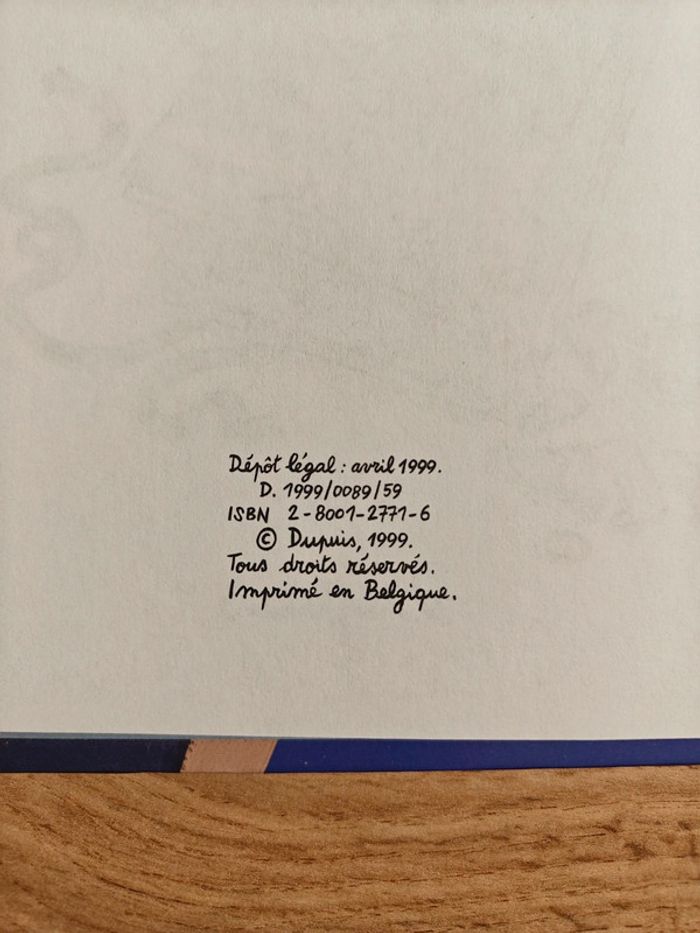 Dépôt légal : avril 1999.
D. 1999/0089/59
ISBN 2-8001-2771-6
© Dupuis, 1999.
Tous droits réservés.
Imprimé en Belgique.